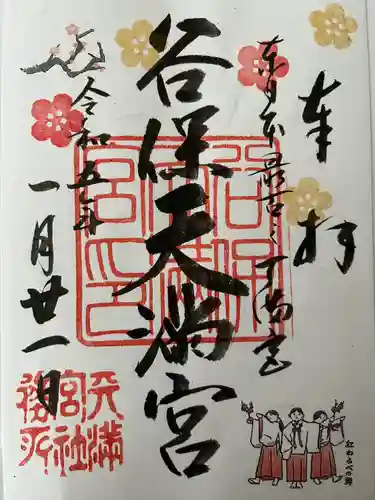 奉拝
東日本最古之天満宮
谷保天満宮
令和五年
一月廿一日
谷保天満宮印
天満宮社務所
紅わらべの舞